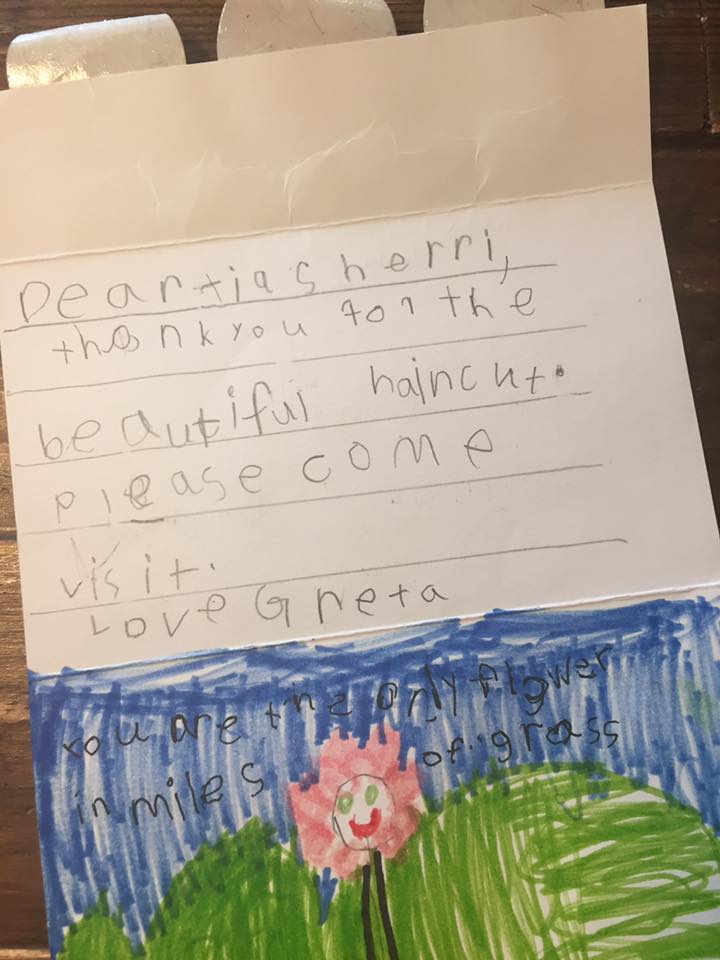 Dear tia Sherri,
thank you for the
beautiful haircut.
please come
visit.
Love Greta
You are the only flower
in miles of grass